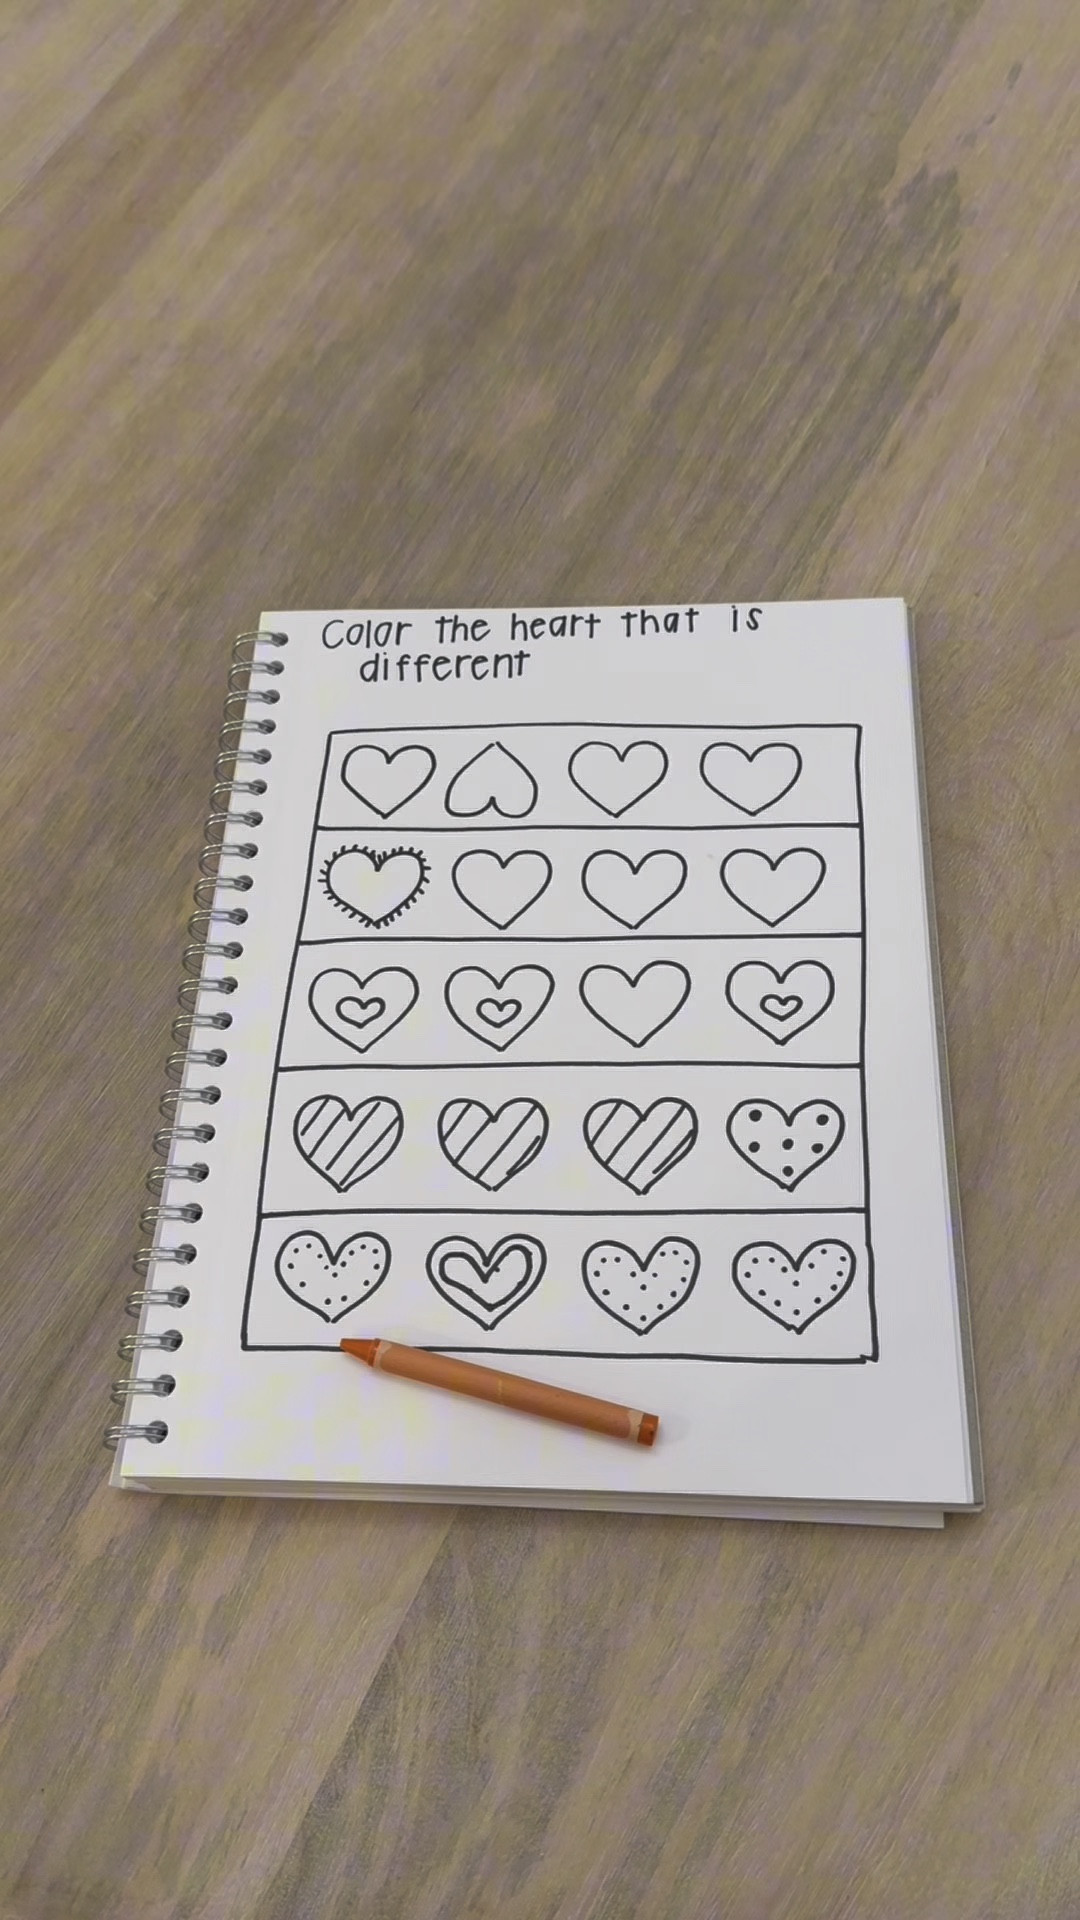 Color the heart that is
different